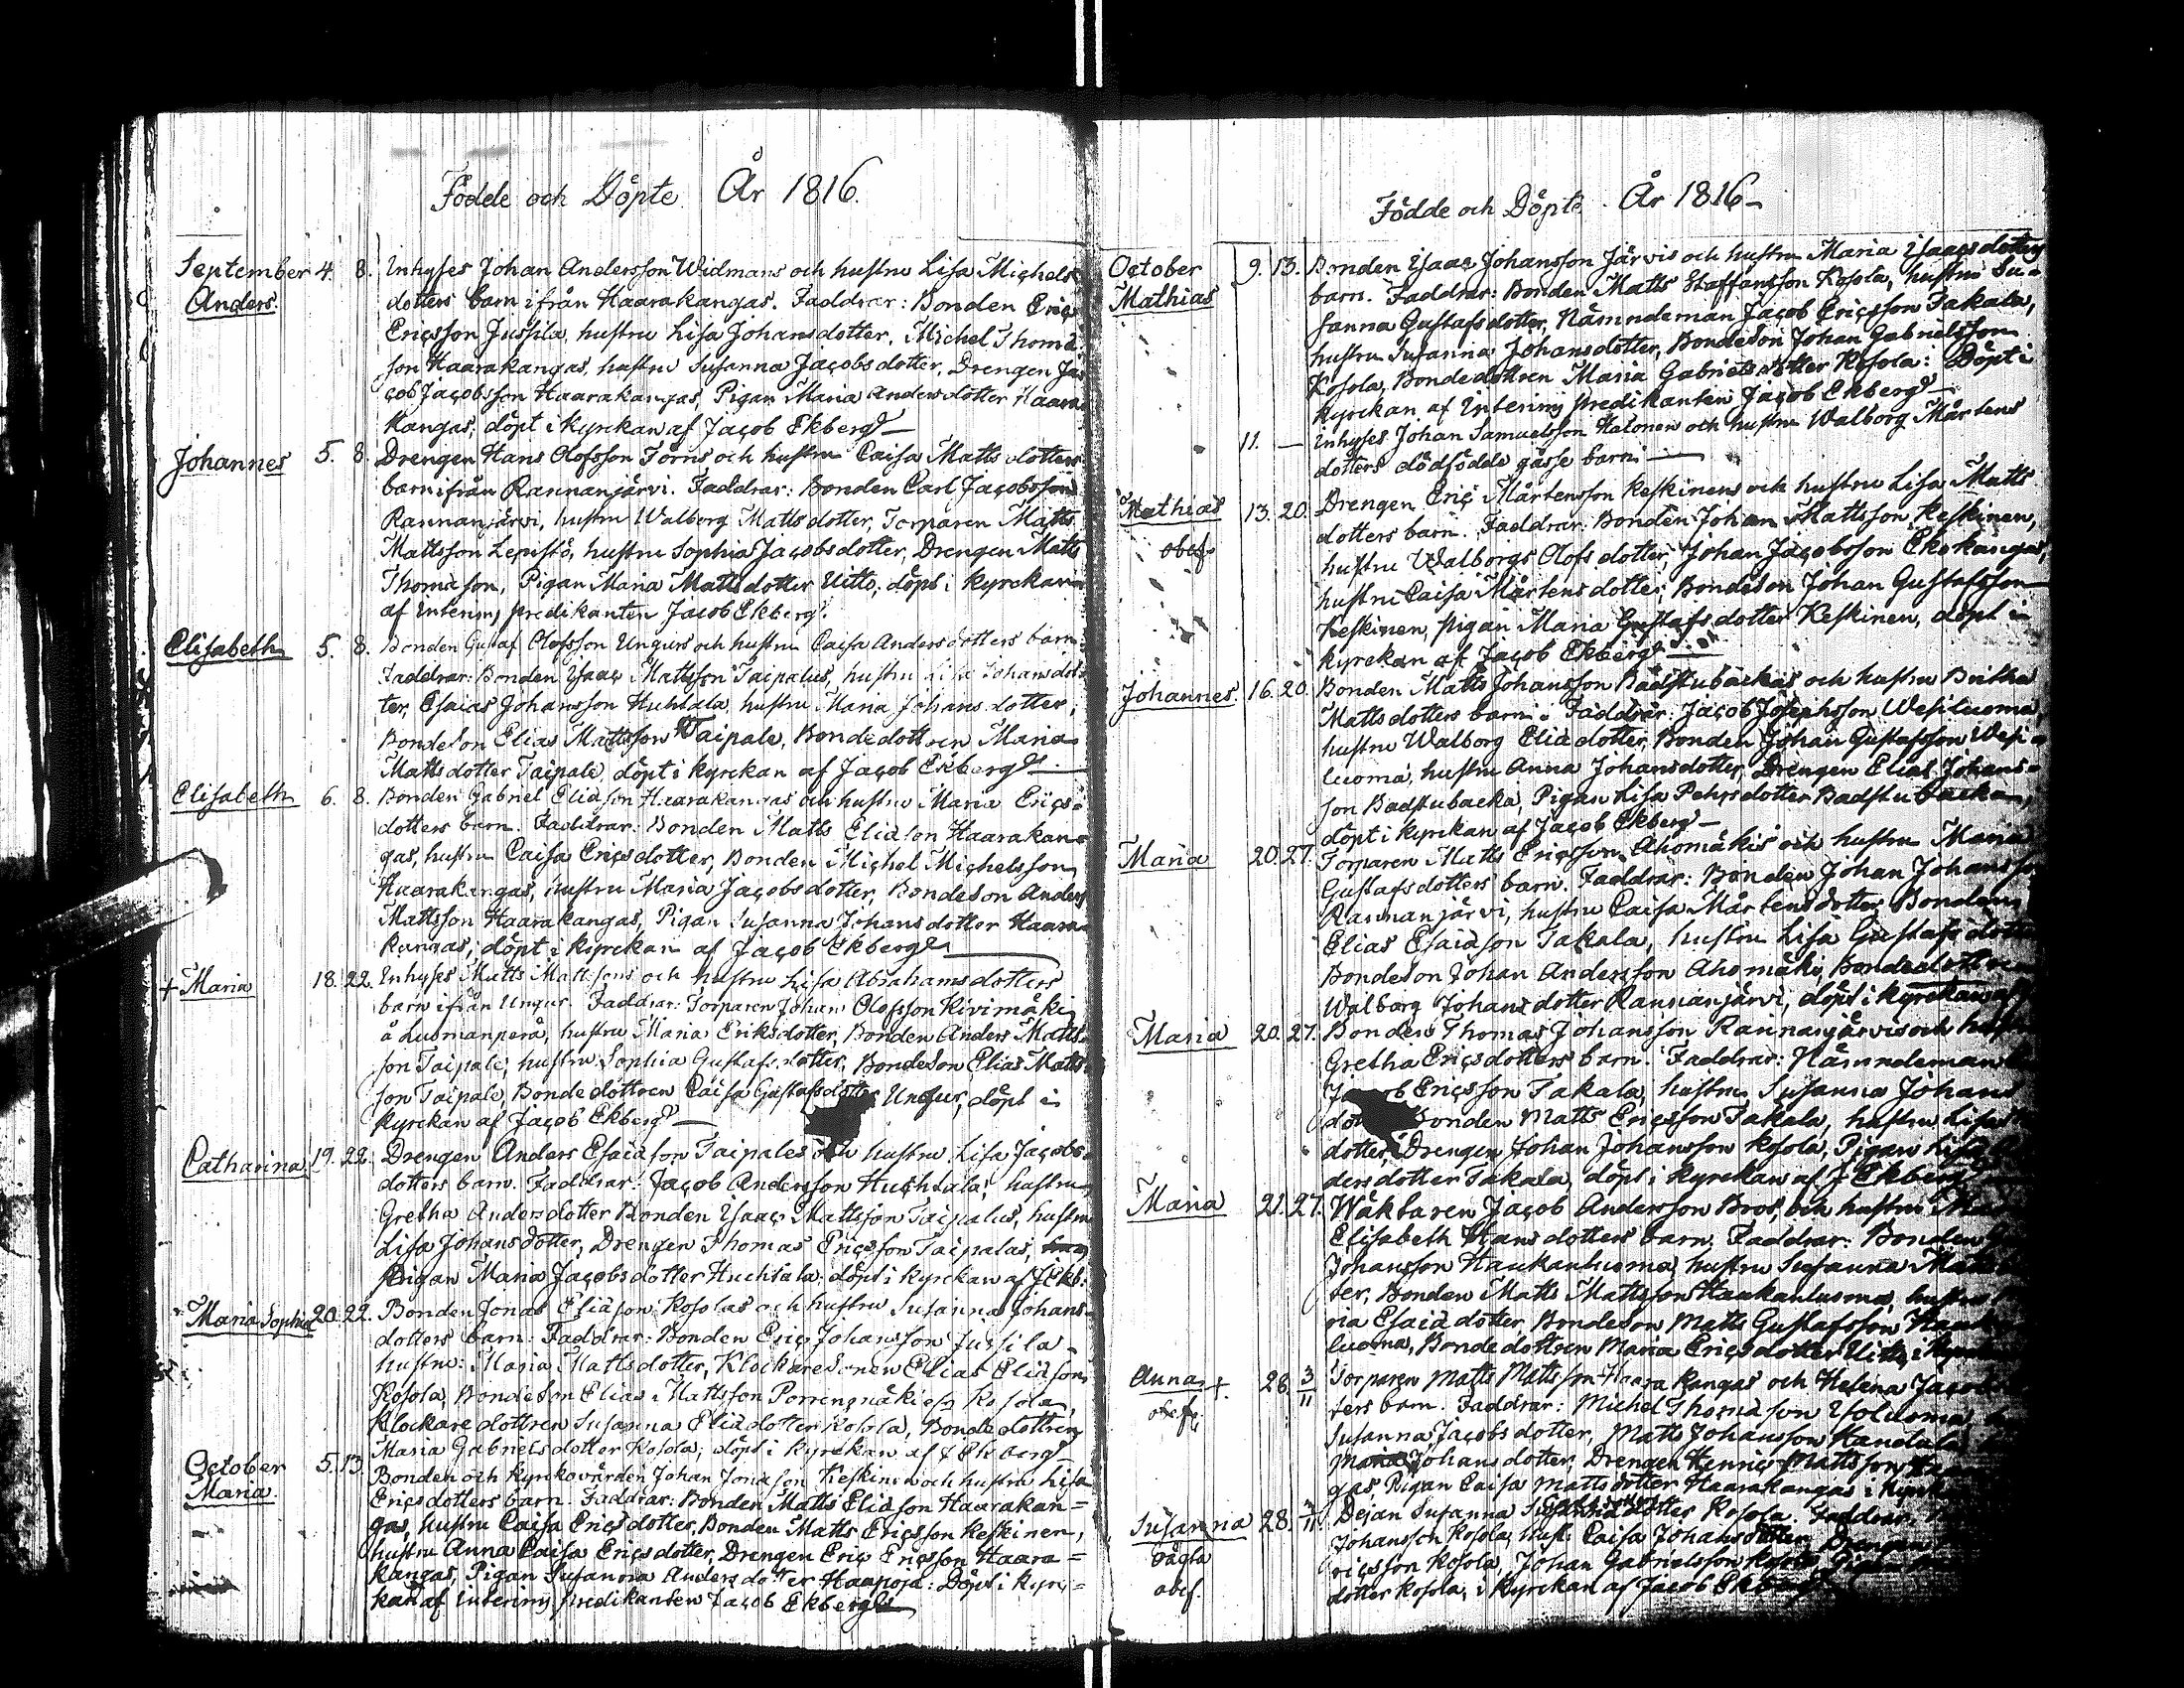 Födde och Döpte År 1816.
September 4. 8. Inhyses Johan Andersson Widmans och hustru Lisa Michels
Anders. dotters barn ifrån Haarakangas. Faddrar: Bonden Eriç
Ericsson Jussila, hustru Lisa Johansdotter, Michel Thoma
son Haarakangas, hustru Susanna Jacobsdotter, Drengen Ja
cob Jacobsson Haarakangas, Pigan Maria Andersdotter Haara
kangas, döpt i Kyrckan af Jacob Ekberg
Johannes 5. 8. Drengen Hans Olofsson Törns och hustru Caisa Matts dotters
barn ifrån Rannanjärvi. Faddrar: Bonden Carl Jacobsson
Rannanjärvi, hustru Walborg Mattsdotter, Torparen Matts
Mattsson Lepistö, hustru Sophia Jacobsdotter, Drengen Matts
Thomason, Pigan Maria Mattsdotter Uitto, döpt i kyrckan
af Interims predikanten Jacob Ekberg.
Elisabeth 5. 8. Bonden Gustaf Olofsson Ungurs och hustru Caisa Andersdotters barn
Faddrar: Bonden Isaac Mattsson Taipalus, hustru Lisa Johansdot
ter, Esaias Johansson Huhtala hustru Maria Johansdotter,
Bondeson Elias Mattsson Taipale, Bondedottren Maria
Mattsdotter Taipale, döpt i kyrckan af Jacob Ekberg
Elisabeth 6. 8. Bonden Gabriel Eliason Haarakangas och hustru Maria Erics
dotters barn. Faddrar: Bonden Matts Eliason Haarakan
gas, hustru Caisa Ericsdotter, Bonden Michel Michelsson
Haarakangas, hustru Maria Jacobsdotter, Bondeson Anders
Mattsson Haarakangas, Pigan Susanna Johansdotter Haara
kangas, döpt i kyrckan af Jacob Ekberg
+ Maria 18. 22. Inhyses Matts Mattssons och hustru Lisa Abrahamsdotters
barn ifrån Ungur. Faddrar: Torparen Johan Olofsson Kivimäki
å Luomanperä, hustru Maria Eriksdotter, Bonden Anders Matts
son Taipale, hustru Sophia Gustafsdotter, Bondeson Elias Matts
son Taipale, Bondedottren Caisa Gustafsdotter Ungur, döpt i
kyrckan af Jacob Ekberg
Catharina 19. 22. Drengen Anders Esaiason Taipales och hustru Lisa Jacobs
dotters barn. Faddrar: Jacob Andersson Huchtala, hustru
Gretha Andersdotter Bonden Isaac Mattsson Taipalus, hustru
Lisa Johansdotter, Drengen Thomas Ericsson Taipalus,
Pigan Maria Jacobsdotter Huchtala, döpt i kyrckan af J Ekb:
Maria Sophia 20. 22. Bonden Jonas Eliason Kosolas och hustru Susanna Johans
dotters barn: Faddrar: Bonden Eric Johansson Jussila
hustru: Maria Mattsdotter, Klockaresonen Elias Eliason
Kosola, Bondeson Elias Mattsson Kosola,
Klockaredottren Susanna Eliadotter Kosola, Bondedottren
Maria Gabrielsdotter Kosola; döpt i kyrckan af J Ekberg
October 5. 13. Bonden och kyrckovärden Johan Jonason Keskinen och hustru Lisa
Maria Ericsdotters barn. Faddrar: Bonden Matts Eliason Haarakan=
gas, hustru Caisa Ericsdotter, Bonden Matts Ericsson Keskinen,
hustru Anna Caisa Ericsdotter, Drengen Eric Ericsson Haara=
kangas, Pigan Susanna Andersdotter Haapoja: Döpt i kyrc=
kan af Interims predikanten Jacob Ekberg
Födde och Döpte År 1816
October 9. 13. Bonden Isaac Johansson Järvis och hustru Maria Isaacsdotters
Mathias barn. Faddrar: Bonden Matts Staffansson Kosola, hustru Su=
sanna Gustafsdotter, Nämndeman Jacob Ericsson Takala,
hustru Susanna Johansdotter, Bondeson Johan Gabrielsson
Kosola, Bondedottren Maria Gabrielsdotter Kosola: Döpt i
kyrckan af Interims predikanten Jacob Ekberg
11. — Inhyses Johan Samuelsson och hustru Walborg Mårtens
dotters dödfödde gosse barn
Mathias 13. 20. Drengen Eric Mårtensson Keskinens och hustru Lisa Matts
oäf. dotters barn. Faddrar: Bonden Johan Mattsson Keskinen,
hustru Walborg Olofsdotter, Johan Jacobsson Ekokangas,
hustru Caisa Mårtensdotter, Bondeson Johan Gustafsson
Keskinen, pigan Maria Gustafsdotter Keskinen, döpt i
kyrckan af Jacob Ekberg
Johannes 16. 20. Bonden Matts Johansson Badstubackas och hustru Britha
Mattsdotters barn. Faddrar: Jacob Josephsson Wesiluoma
hustru Walborg Eliadotter, Bonden Johan Gustafsson Wesi
luoma, hustru Anna Johansdotter, Drengen Elias Johans
son Badstubacka, Pigan Lisa Pehrsdotter Badstubacka,
döpt i kyrckan af Jacob Ekberg
Maria 20. 27. Torparen Matts Ericsson Ahomäkis och hustru Maria
Gustafsdotters barn. Faddrar: Bonden Johan Johansso
Rannanjärvi, hustru Caisa Mårtensdotter Bonden
Elias Esaiason Takala, hustru Lisa Gustafsdotter
Bondeson Johan Andersson Ahomäki, Bondedottren
Walborg Johansdotter Rannanjärvi, döpt i kyrckan af
Maria 20. 27. Bonden Thomas Johansson Rannanjärvis och hustru
Gretha Ericsdotters barn. Faddrar: Nämndeman
Jacob Ericsson Takala, hustru Susanna Johans
dotter Bonden Matts Ericsson Takala, hustru Lisa
dotter, Drengen Johan Johansson Kosola, Pigan Lisa
dersdotter Takala, döpt i kyrckan af J Ekberg
Maria 21. 27. Wäktaren Jacob Andersson Bros, och hustru Ma
Elisabeth Hansdotters barn. Faddrar: Bonden
Johansson Haukanluoma, hustru Susanna Matts
ter, Bonden Matts Mattsson Haukanluoma, hustru
ria Esaiadotter, Bondeson Matts Gustafsson Hauka
luoma, Bondedottren Maria Ericsdotter Uitto, i kyrck
Anna + 28. 3/11 Torparen Matts Mattsson Haarakangas och Helena Jacobs
ters barn. Faddrar: Michel Thomason Isoluoma
Susanna Jacobsdotter, Matts Johansson Handala
Maria Johansdotter, Drengen Henric Mattsson
gas, Pigan Caisa Mattsdotter Haarakangas i kyrck
Susanna 28. 3/11 Dejan Susanna dotter Kosola. Faddrar,
oägta Johansson Kosola, hust: Caisa Johansdotter, Drengen
ricsson Kosola, Johan Gabrielsson Kosola, Pigan
dotter Kosola, i kyrckan af Jacob Ekberg